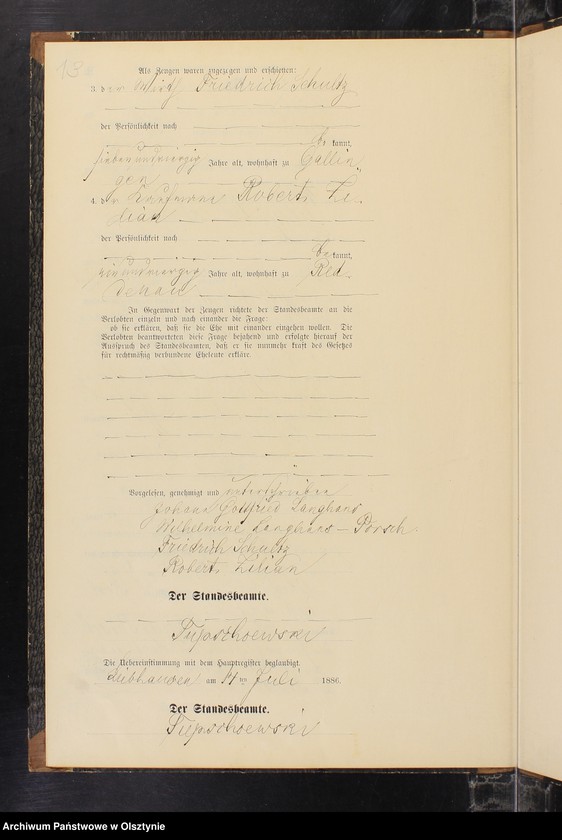 Als Zeugen waren zugezogen und erschienen:
3. der Wirth Friedrich Schultz
der Persönlichkeit nach
be kannt,
siebenundvierzig Jahre alt, wohnhaft zu Gallin-
gen
4. der Kaufmann Robert Li-
dian
der Persönlichkeit nach
be kannt,
einundvierzig Jahre alt, wohnhaft zu Red-
denau
In Gegenwart der Zeugen richtete der Standesbeamte an die
Verlobten einzeln und nach einander die Frage:
ob sie erklären, daß sie die Ehe mit einander eingehen wollen. Die
Verlobten beantworteten diese Frage bejahend und erfolgte hierauf der
Ausspruch des Standesbeamten, daß er sie nunmehr kraft des Gesetzes
für rechtmäßig verbundene Eheleute erkläre.
Vorgelesen, genehmigt und unterschrieben
Johann Gottfried Langhans
Wilhelmine Langhans – Porsch
Friedrich Schultz
Robert Lidian
Der Standesbeamte.
Die Uebereinstimmung mit dem Hauptregister beglaubigt.
am Juli 1886.
Der Standesbeamte.
Archiwum Państwowe w Olsztynie